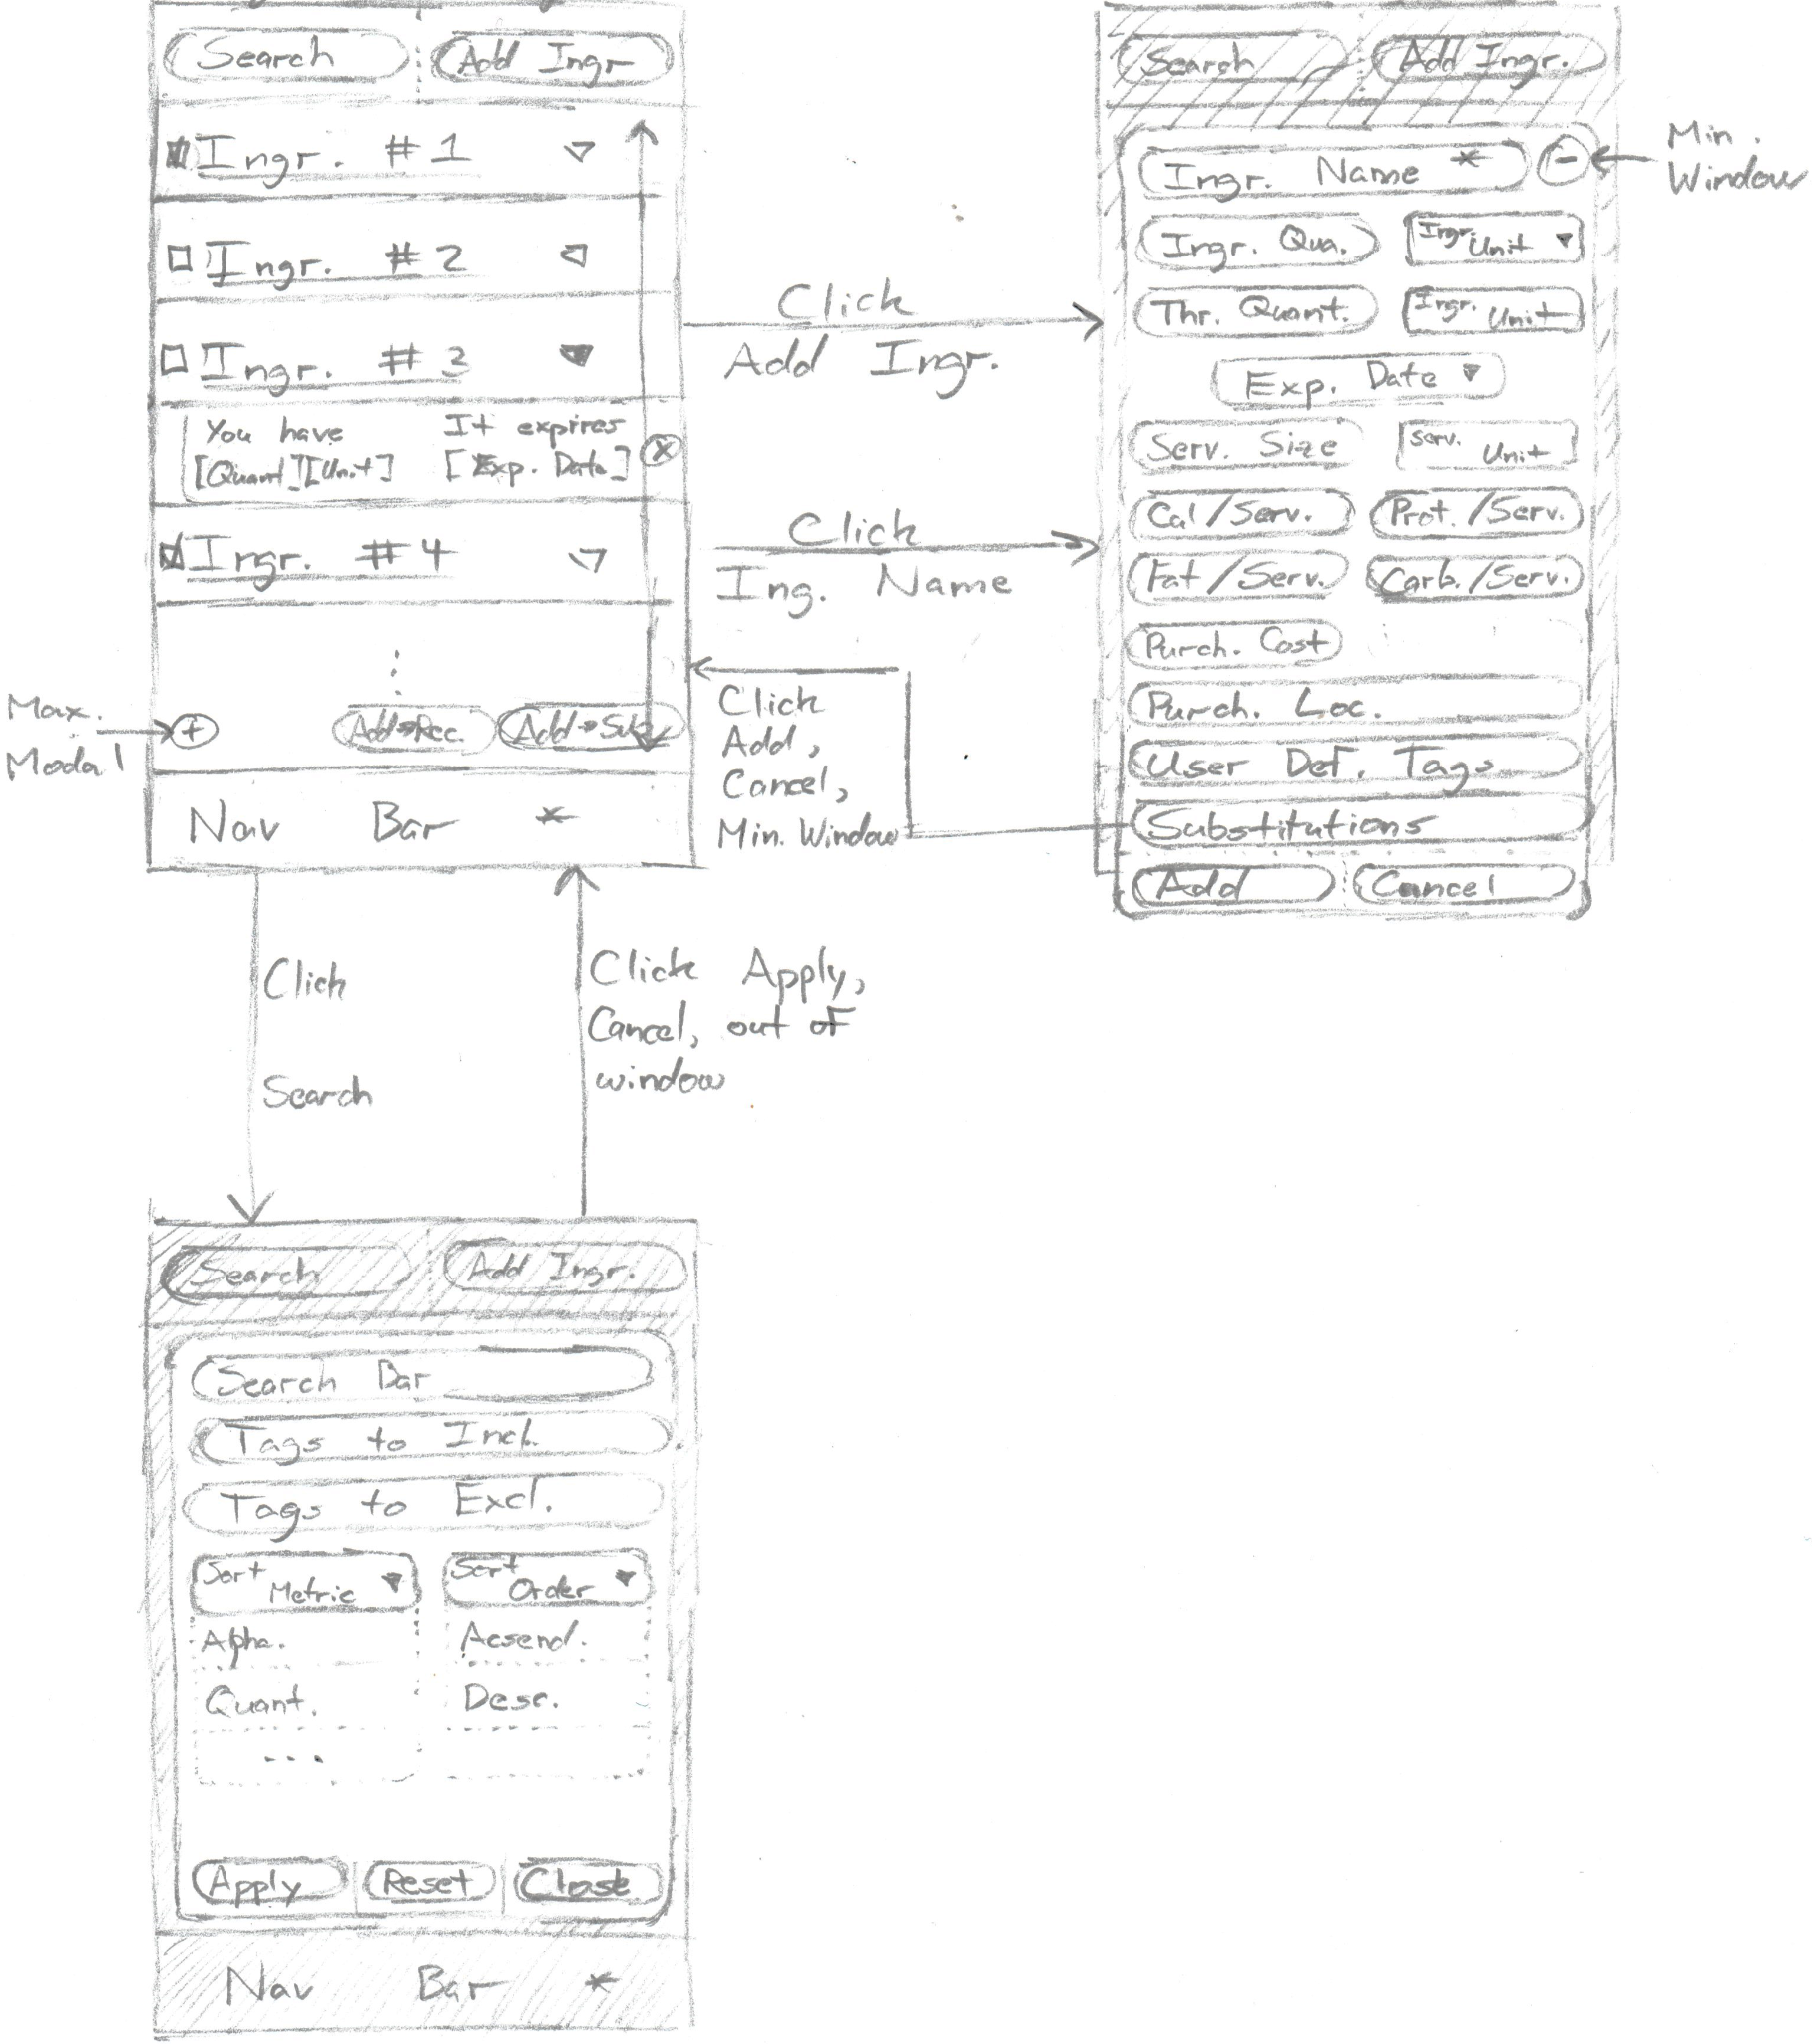 Search
Add Ingr
Ingr. #1
Ingr. #2
Ingr. #3
You have
[Quant][Unit]
It expires
[Exp. Date]
Ingr. #4
Max.
Modal
Add→Rec.
Add→Sub
Nav Bar *
Click
Add Ingr.
Click
Ing. Name
Click
Add,
Cancel,
Min. Window
Search
Add Ingr.
Min.
Window
Ingr. Name *
Ingr. Qua.
Ingr. Unit
Thr. Quant.
Ingr. Unit
Exp. Date
Serv. Size
Serv. Unit
Cal/Serv.
Prot./Serv.
Fat/Serv.
Carb./Serv.
Purch. Cost
Purch. Loc.
User Def. Tags
Substitutions
Add
Cancel
Click
Search
Click Apply,
Cancel, out of
window
Search
Add Ingr.
Search Bar
Tags to Incl.
Tags to Excl.
Sort Metric
Sort Order
Alpha.
Acsend.
Quant.
Desc.
...
Apply
Reset
Close
Nav Bar *